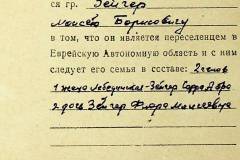 ся гр. Зейгер
Моисею Борисовичу
в том, что он является переселенцем в
Еврейскую Автономную область и с ним
следует его семья в составе: 2 челов
1 жена Зейгер Сарра
2 дочь Зейгер Фира Моисеевна